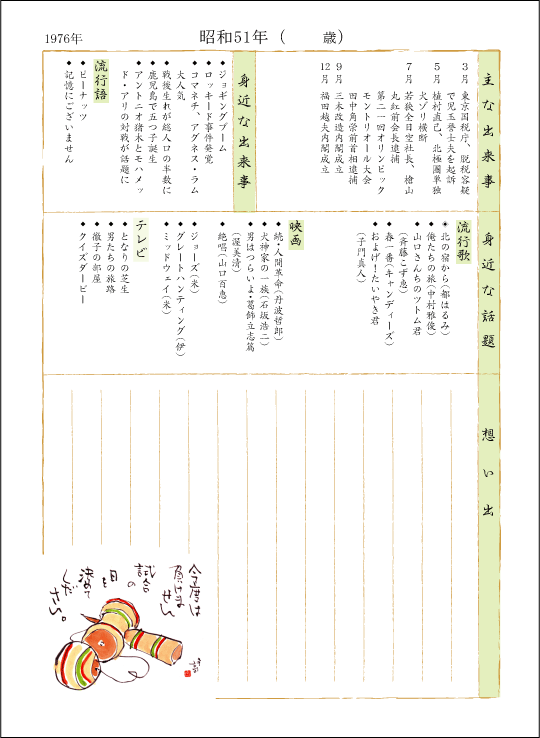 1976年
昭和51年（　　歳）
主な出来事
３月　東京国税庁、脱税容疑
で児玉誉士夫を起訴
５月　植村直己、北極圏単独
犬ゾリ横断
７月　若狭全日空社長、檜山
丸紅前会長逮捕
第二一回オリンピック
モントリオール大会
田中角栄前首相逮捕
９月　三木改造内閣成立
12月　福田赳夫内閣成立
身近な出来事
◆ジョギングブーム
◆ロッキード事件発覚
◆コマネチ、アグネス・ラム
大人気
◆戦後生れが総人口の半数に
◆鹿児島で五つ子誕生
◆アントニオ猪木とモハメッ
ド・アリの対戦が話題に
流行語
◆ピーナッツ
◆記憶にございません
身近な話題
流行歌
＊北の宿から（都はるみ）
◆俺たちの旅（中村雅俊）
◆山口さんちのツトム君
（斉藤こず恵）
◆春一番（キャンディーズ）
◆およげ！たいやき君
（子門真人）
映画
◆続・人間革命（丹波哲郎）
◆犬神家の一族（石坂浩二）
◆男はつらいよ・葛飾立志篇
（渥美清）
◆絶唱（山口百恵）
◆ジョーズ（米）
◆グレートハンティング（伊）
◆ミッドウェイ（米）
テレビ
◆となりの芝生
◆男たちの旅路
◆徹子の部屋
◆クイズダービー
想い出
今度は
負けま
せん
試合
の
日を
決めて
くだ
さい。